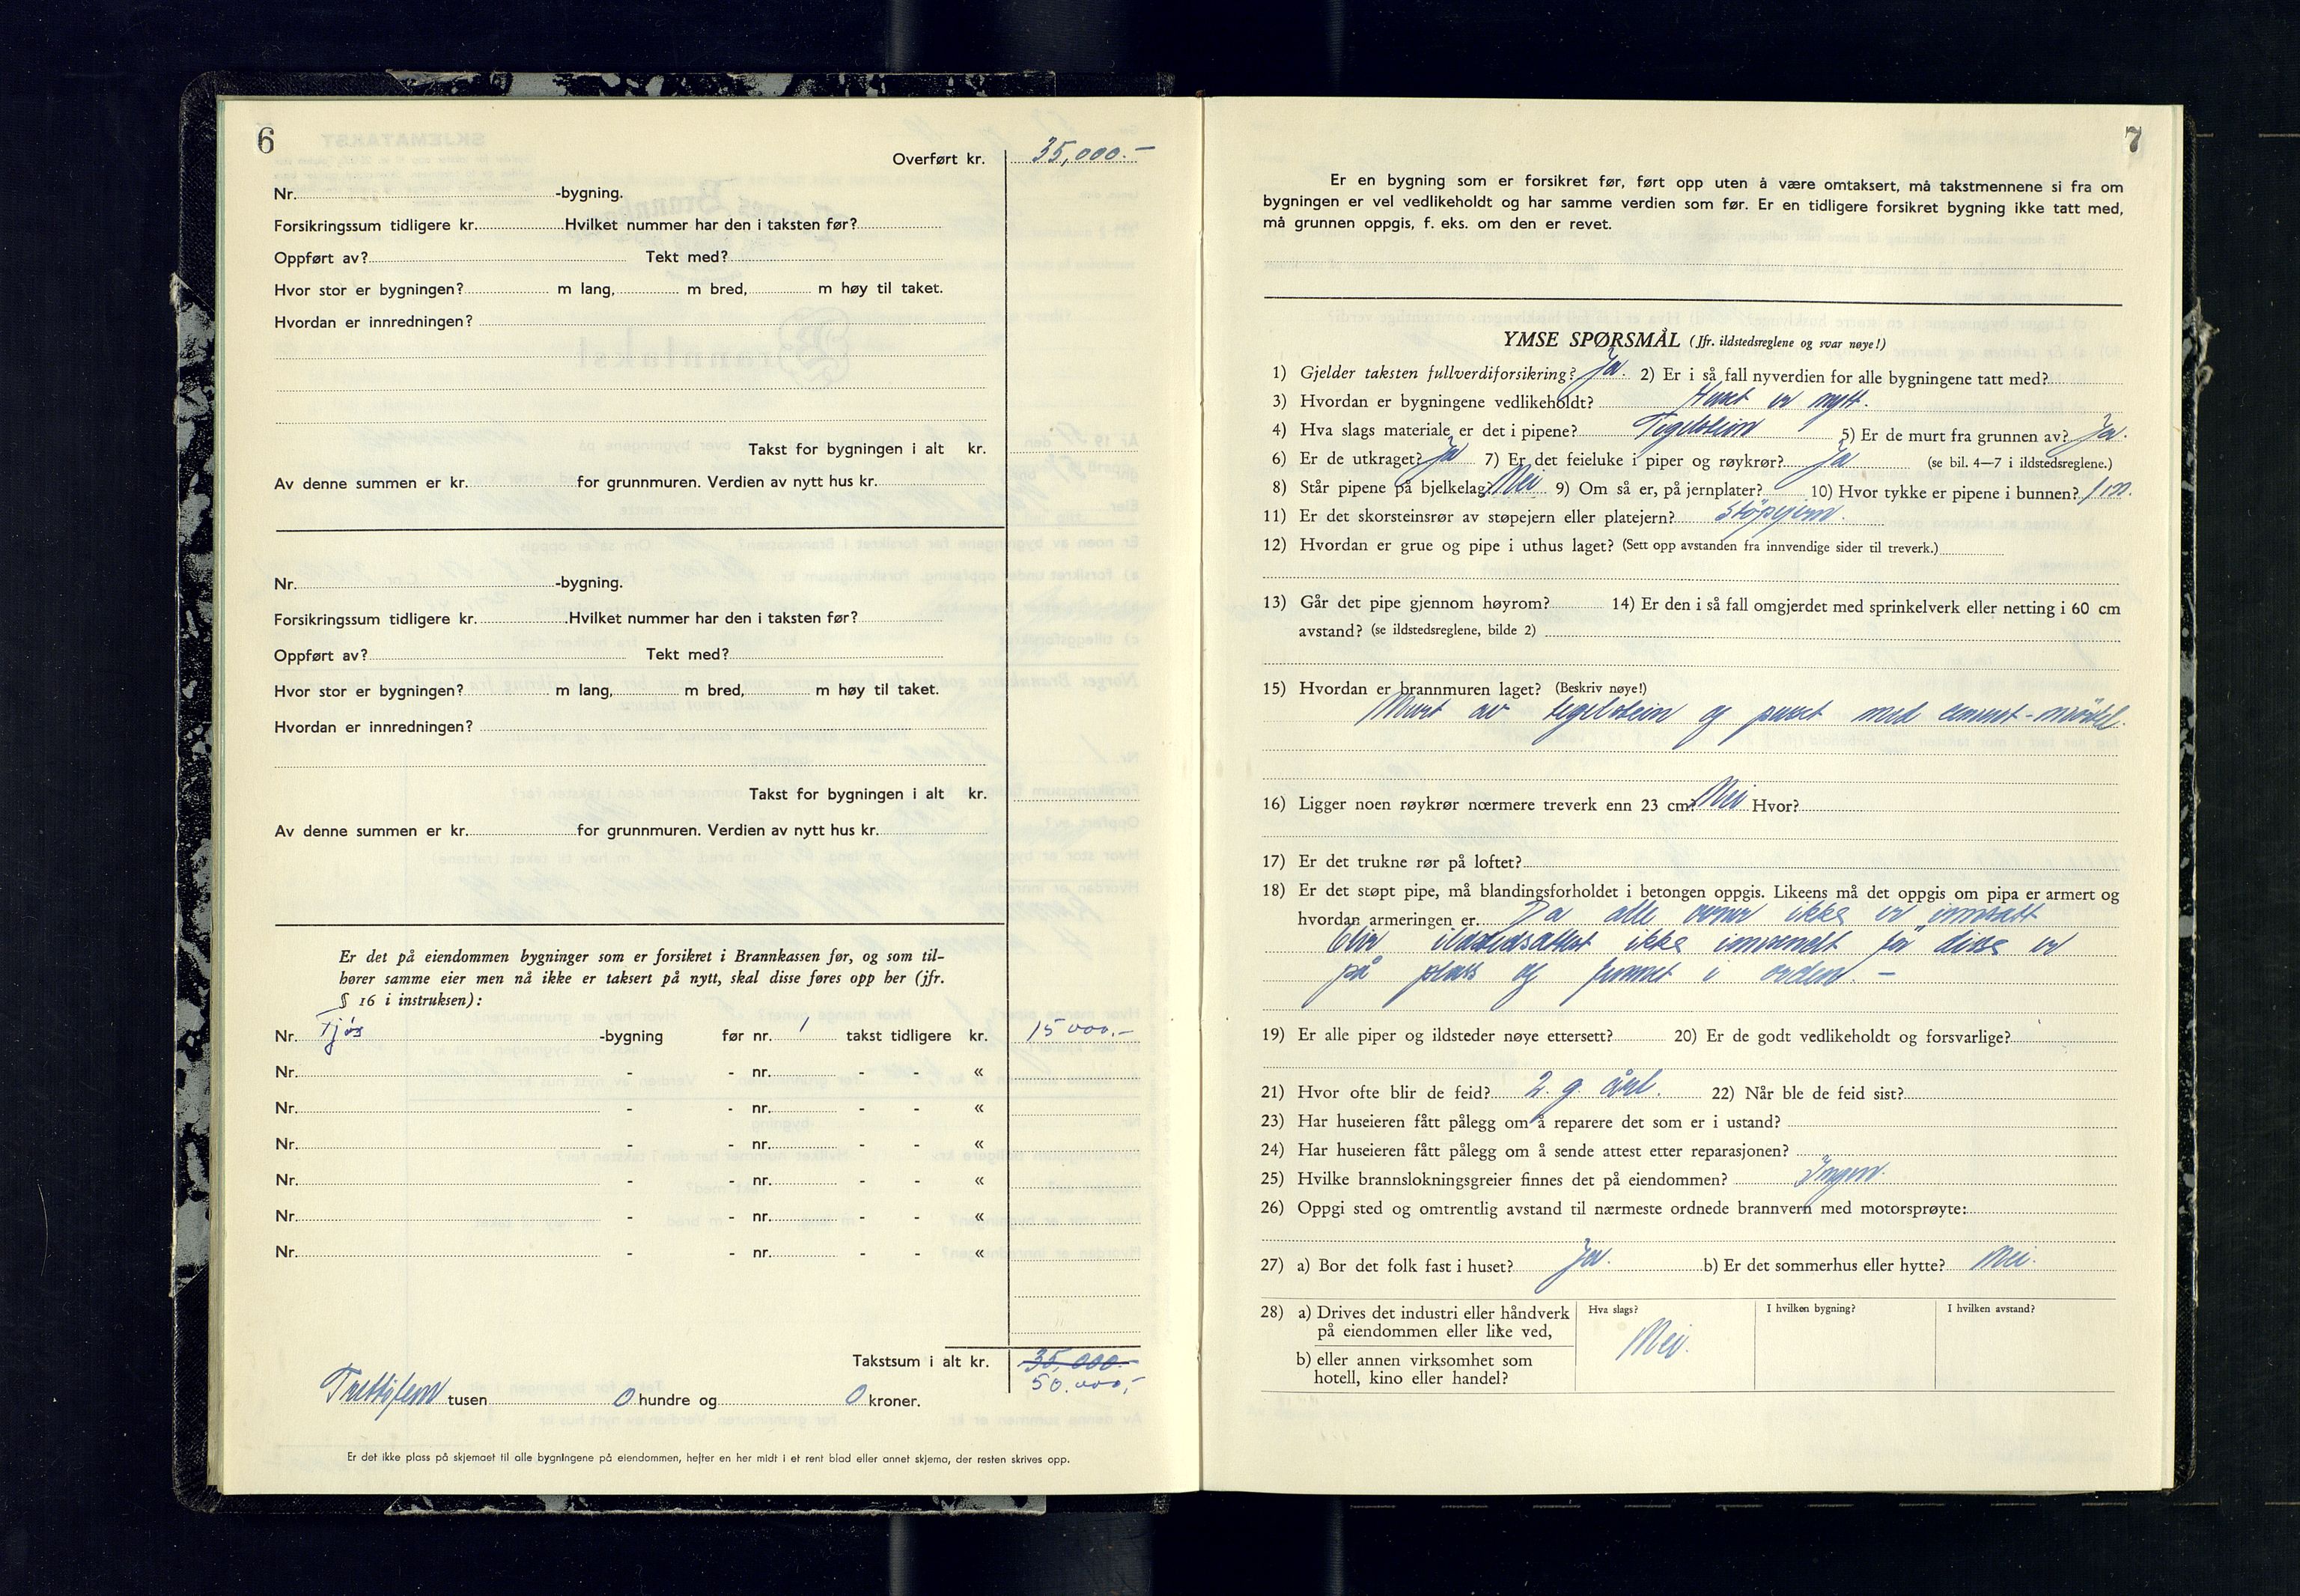 6
Overført kr. 35,000.-
Nr. -bygning.
Forsikringssum tidligere kr. Hvilket nummer har den i taksten før?
Oppført av? Tekt med?
Hvor stor er bygningen? m lang, m bred, m høy til taket.
Hvordan er innredningen?
Takst for bygningen i alt kr.
Av denne summen er kr. for grunnmuren. Verdien av nytt hus kr.
Nr. -bygning.
Forsikringssum tidligere kr. Hvilket nummer har den i taksten før?
Oppført av? Tekt med?
Hvor stor er bygningen? m lang, m bred, m høy til taket.
Hvordan er innredningen?
Takst for bygningen i alt kr.
Av denne summen er kr. for grunnmuren. Verdien av nytt hus kr.
Er det på eiendommen bygninger som er forsikret i Brannkassen før, og som til-
hører samme eier men nå ikke er taksert på nytt, skal disse føres opp her (jfr.
§ 16 i instruksen):
Nr. Fjøs -bygning før nr. 1 takst tidligere kr. 15 000.-
Nr. - - nr. - - «
Nr. - - nr. - - «
Nr. - - nr. - - «
Nr. - - nr. - - «
Nr. - - nr. - - «
Nr. - - nr. - - «
Takstsum i alt kr. 35,000.-
50.000,-
Trettifem tusen 0 hundre og 0 kroner.
Er det ikke plass på skjemaet til alle bygningene på eiendommen, hefter en her midt i et rent blad eller annet skjema, der resten skrives opp.
7
Er en bygning som er forsikret før, ført opp uten å være omtaksert, må takstmennene si fra om
bygningen er vel vedlikeholdt og har samme verdien som før. Er en tidligere forsikret bygning ikke tatt med,
må grunnen oppgis, f. eks. om den er revet.
YMSE SPØRSMÅL (Jfr. ildstedsreglene og svar nøye!)
1) Gjelder taksten fullverdiforsikring? Ja. 2) Er i så fall nyverdien for alle bygningene tatt med?
3) Hvordan er bygningene vedlikeholdt? Huset er nytt.
4) Hva slags materiale er det i pipene? Teglstein 5) Er de murt fra grunnen av? Ja.
6) Er de utkraget? Ja 7) Er det feieluke i piper og røykrør? Ja (se bil. 4—7 i ildstedsreglene.)
8) Står pipene på bjelkelag? Nei 9) Om så er, på jernplater? 10) Hvor tykke er pipene i bunnen? 1 m.
11) Er det skorsteinsrør av støpejern eller platejern? Støpejern.
12) Hvordan er grue og pipe i uthus laget? (Sett opp avstanden fra innvendige sider til treverk.)
13) Går det pipe gjennom høyrom? 14) Er den i så fall omgjerdet med sprinkelverk eller netting i 60 cm
avstand? (se ildstedsreglene, bilde 2)
15) Hvordan er brannmuren laget? (Beskriv nøye!)
Murt av teglstein og pusset med cement-mörtel.
16) Ligger noen røykrør nærmere treverk enn 23 cm? Nei Hvor?
17) Er det trukne rør på loftet?
18) Er det støpt pipe, må blandingsforholdet i betongen oppgis. Likeens må det oppgis om pipa er armert og
hvordan armeringen er. Da alle ovner ikke er innsatt
blir ildstedsattest ikke innsendt før disse er
på plass og funnet i orden. -
19) Er alle piper og ildsteder nøye ettersett? 20) Er de godt vedlikeholdt og forsvarlige?
21) Hvor ofte blir de feid? 2. g. årl. 22) Når ble de feid sist?
23) Har huseieren fått pålegg om å reparere det som er i ustand?
24) Har huseieren fått pålegg om å sende attest etter reparasjonen?
25) Hvilke brannslokningsgreier finnes det på eiendommen? Ingen.
26) Oppgi sted og omtrentlig avstand til nærmeste ordnede brannvern med motorsprøyte:
27) a) Bor det folk fast i huset? Ja. b) Er det sommerhus eller hytte? Nei.
28) a) Drives det industri eller håndverk
på eiendommen eller like ved,
b) eller annen virksomhet som
hotell, kino eller handel?
Hva slags? I hvilken bygning? I hvilken avstand?
Nei.